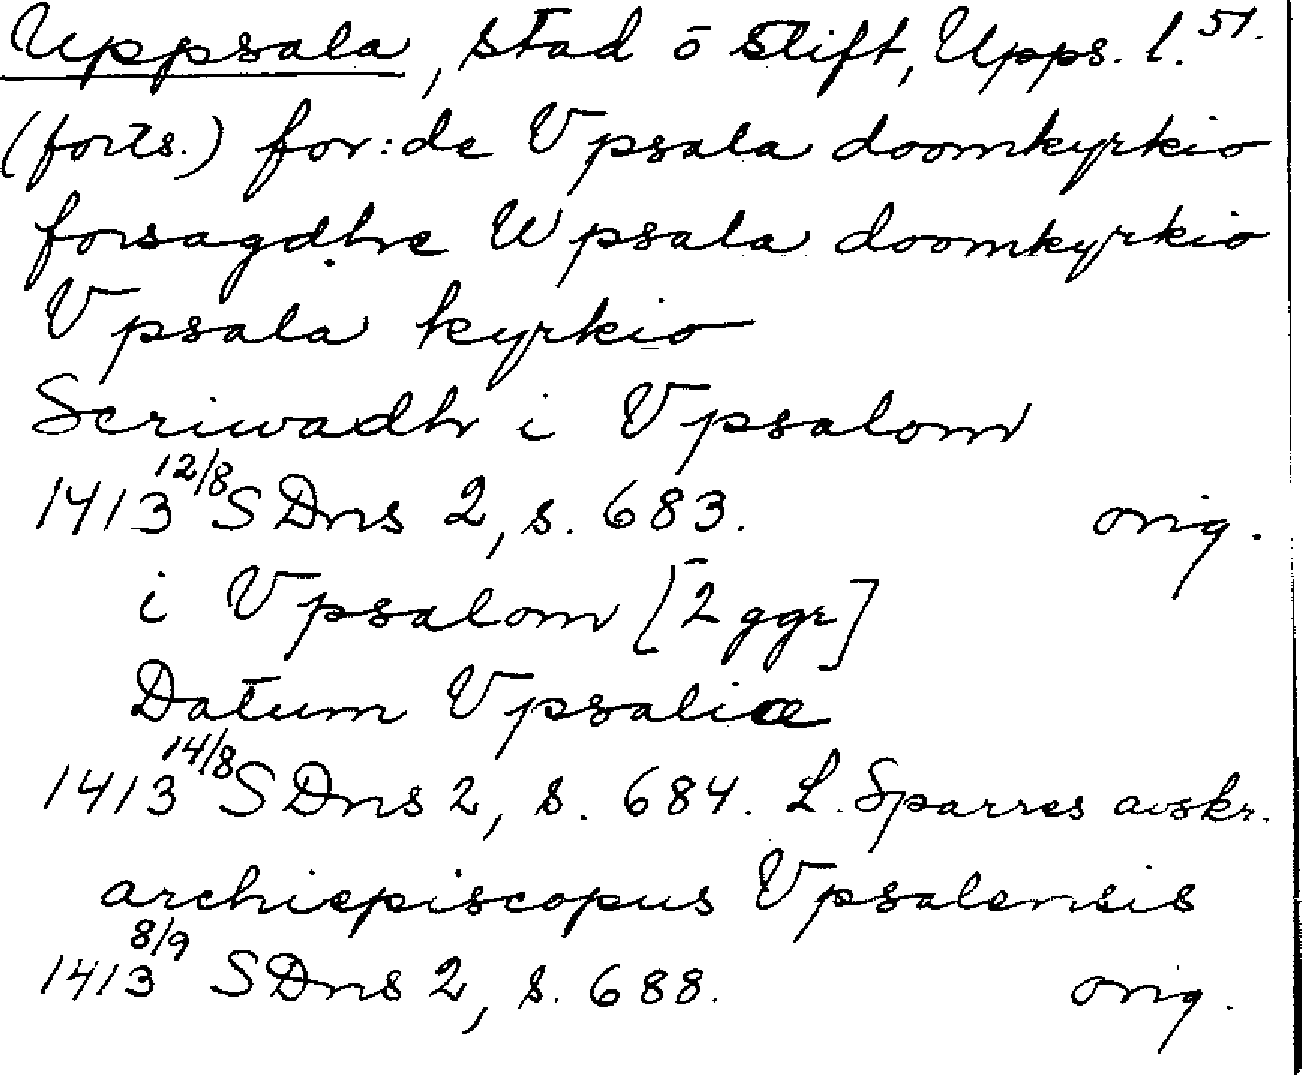 Uppsala, stad ō stift, Upps. l. 51.
(forts.) for:de Vpsala doomkyrkio
forsagdhe Wpsala doomkyrkio
Vpsala kyrkio
Scriwadh i Vpsalom
1413 12/8 SDns 2, s. 683. orig.
i Vpsalom [2 ggr]
Datum Vpsaliæ
1413 14/8 SDns 2, s. 684. L. Sparres avskr.
archiepiscopus Vpsalensis
1413 8/9 SDns 2, s. 688. orig.